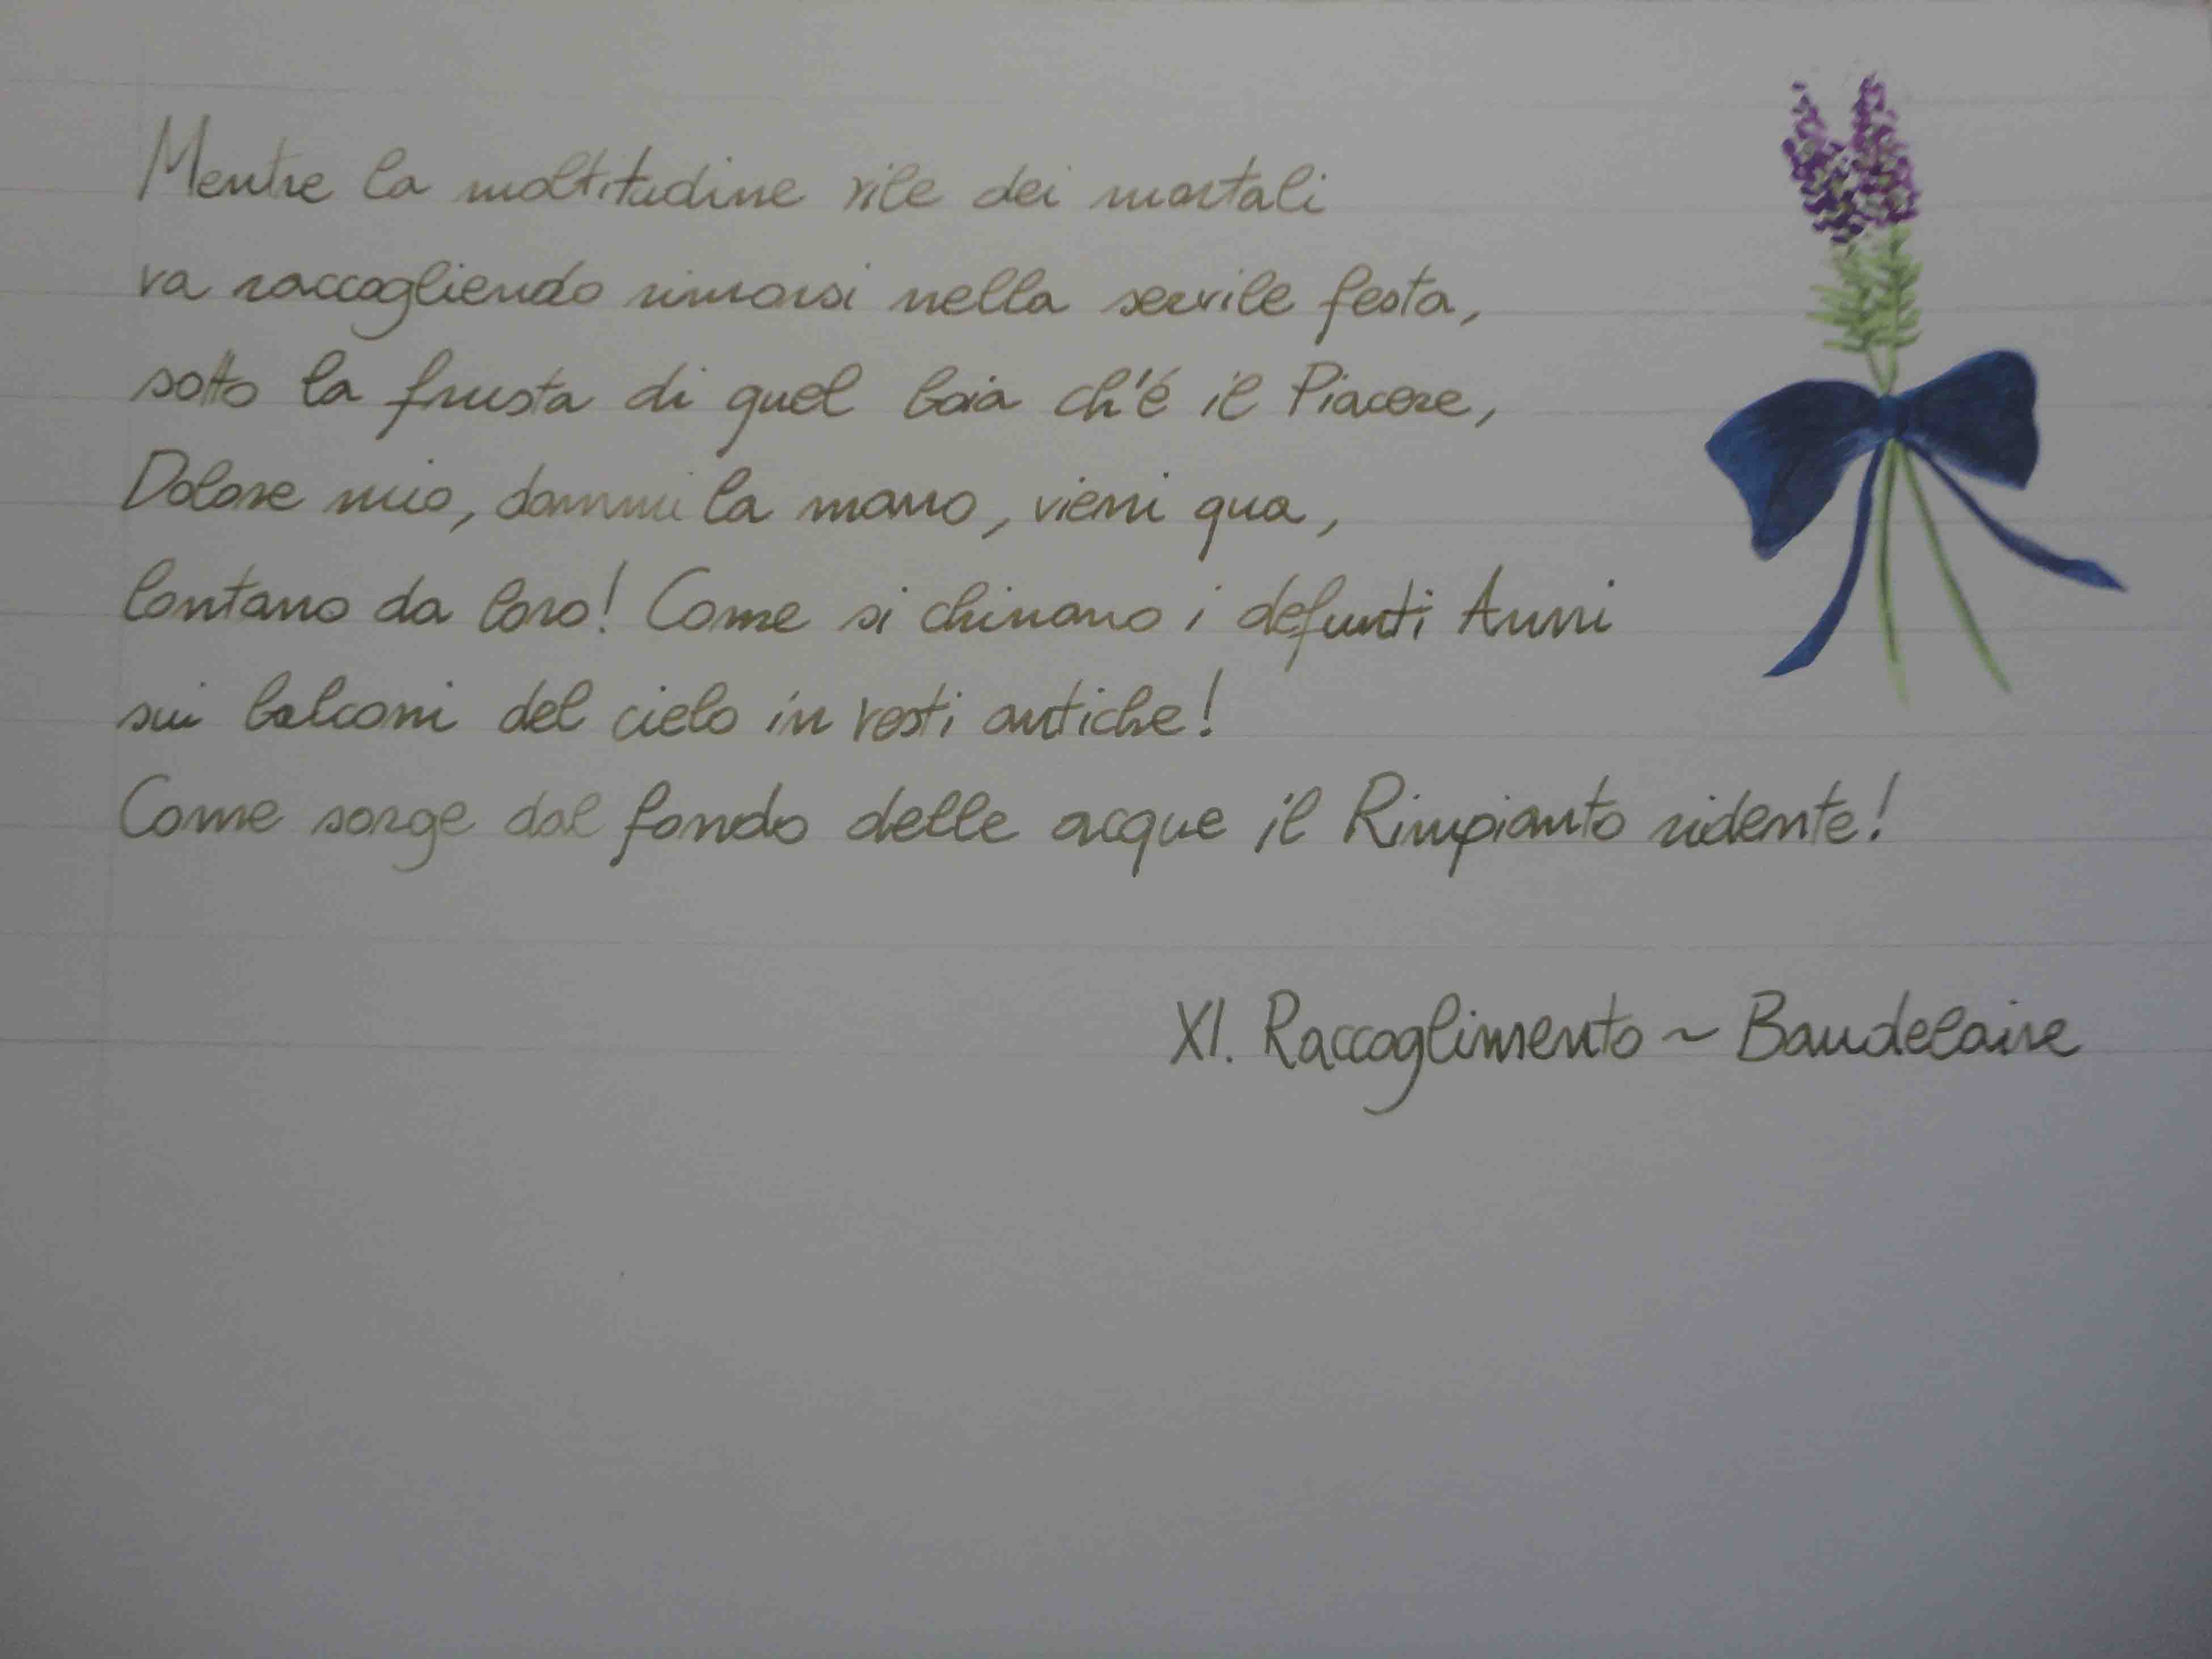 Mentre la moltitudine vile dei mortali
va raccogliendo rimorsi nella servile festa,
sotto la frusta di quel boia ch'é il Piacere,
Dolore mio, dammi la mano, vieni qua,
lontano da loro! Come si chinano i defunti Anni
sui balconi del cielo in vesti antiche!
Come sorge dal fondo delle acque il Rimpianto ridente!
XI. Raccoglimento ~ Baudelaire